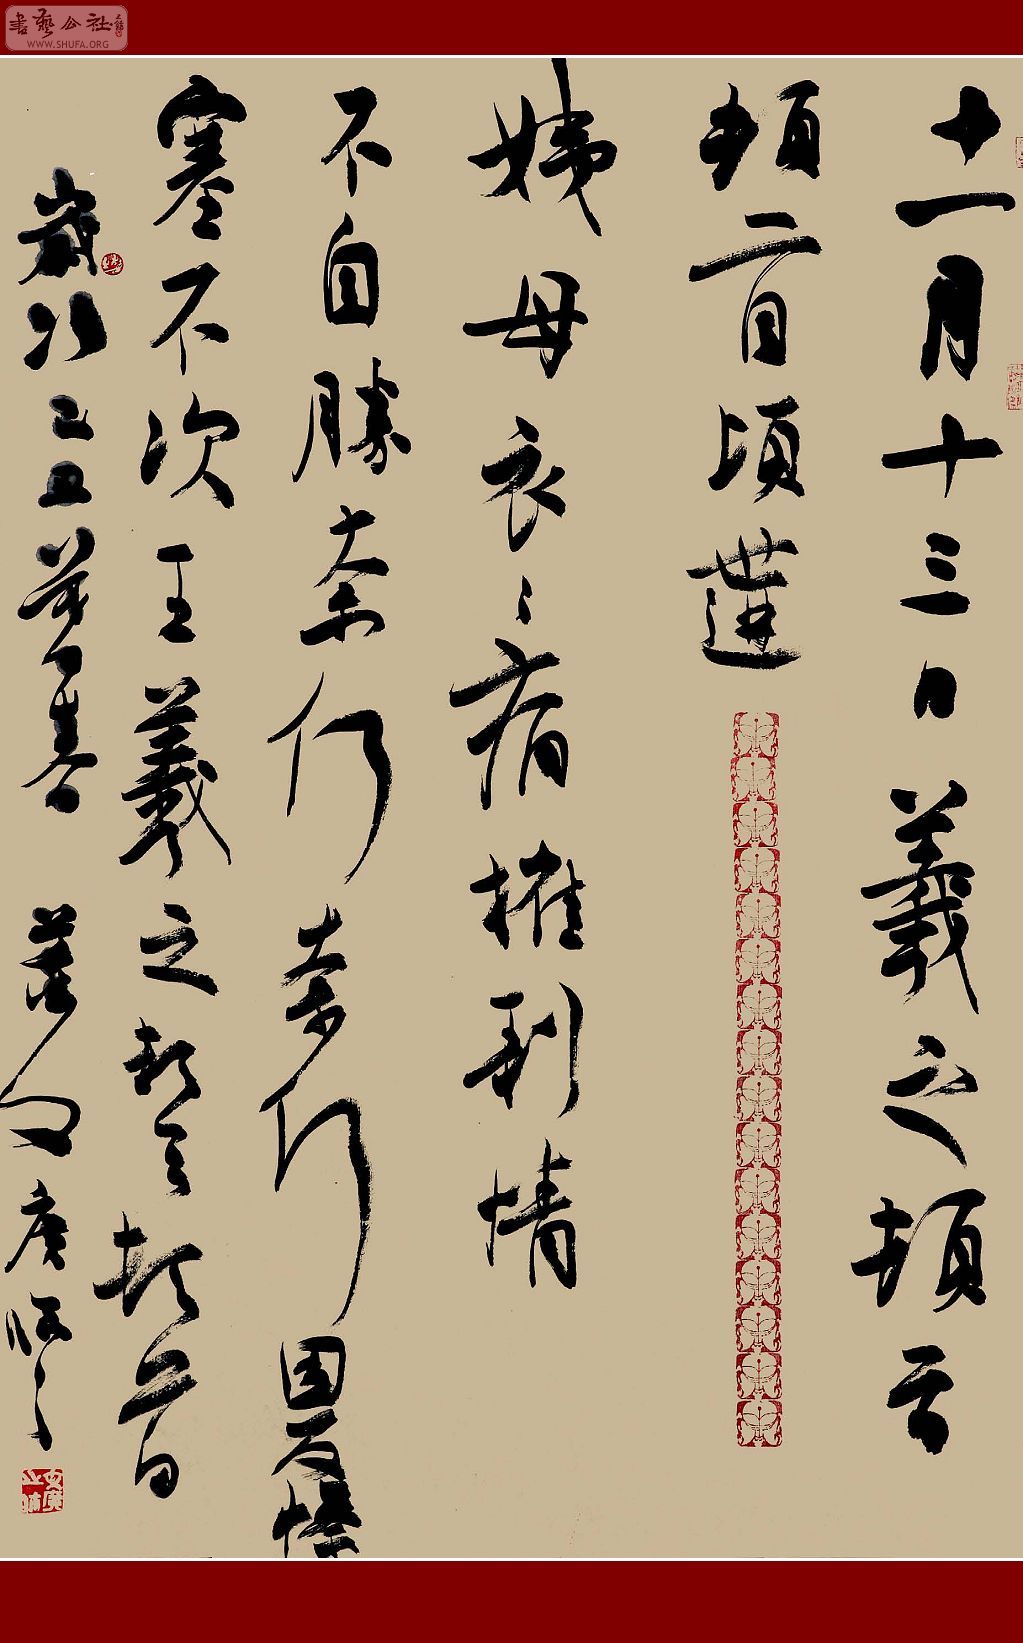 書藝公社
WWW.SHUFA.ORG
十一月十三日羲之頓首
頓首頃遘
姨母哀〻痛摧剝情
不自勝奈何奈何因反慘
塞不次王羲之頓首頓首
歲次己丑春 臨